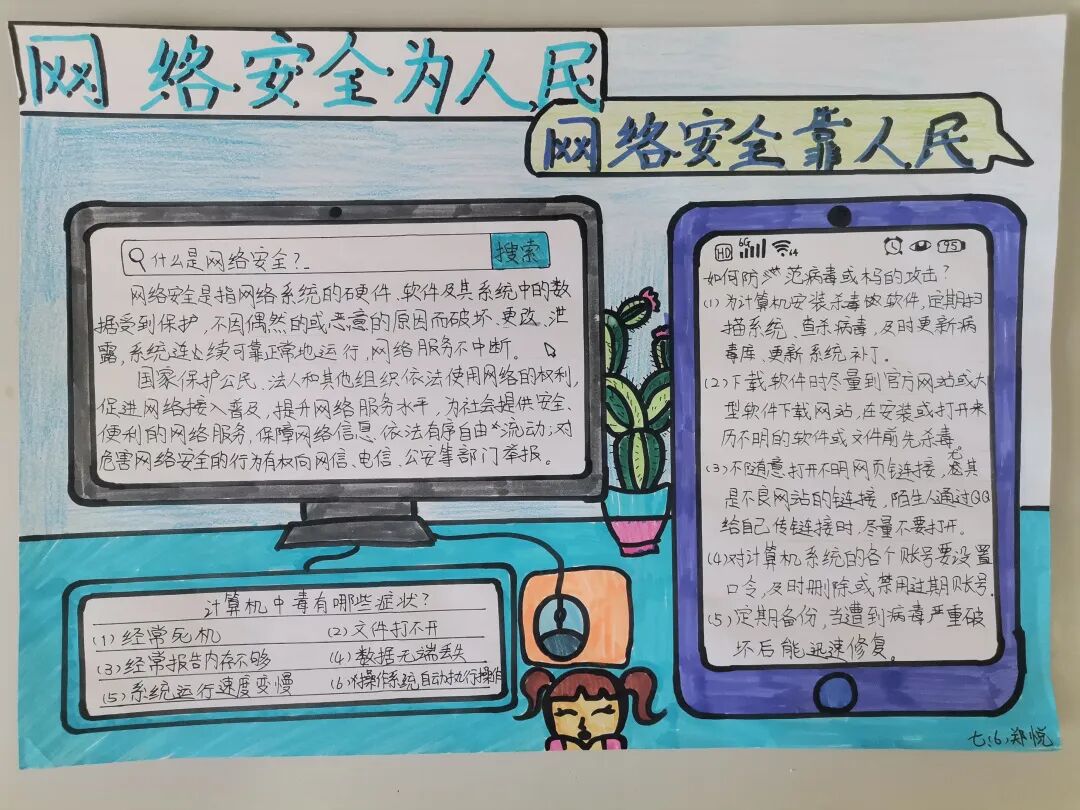 网络安全为人民
网络安全靠人民
什么是网络安全?
搜索
网络安全是指网络系统的硬件、软件及其系统中的数
据受到保护,不因偶然的或恶意的原因而破坏、更改、泄
露,系统连续可靠正常地运行,网络服务不中断。
国家保护公民、法人和其他组织依法使用网络的权利,
促进网络接入普及,提升网络服务水平,为社会提供安全、
便利的网络服务,保障网络信息依法有序自由流动;对
危害网络安全的行为有权向网信、电信、公安等部门举报。
计算机中毒有哪些症状?
(1)经常死机
(2)文件打不开
(3)经常报告内存不够
(4)数据无端丢失
(5)系统运行速度变慢
(6)操作系统自动执行操作
HD 6G
95
如何防范病毒或木马的攻击?
(1)为计算机安装杀毒软件,定期扫
描系统、查杀病毒,及时更新病
毒库、更新系统补丁。
(2)下载软件时尽量到官方网站或大
型软件下载网站,在安装或打开来
历不明的软件或文件前先杀毒。
(3)不随意打开不明网页链接,尤其
是不良网站的链接,陌生人通过QQ
给自己传链接时,尽量不要打开。
(4)对计算机系统的各个账号要设置
口令,及时删除或禁用过期账号.
(5)定期备份,当遭到病毒严重破
坏后能迅速修复。
七.(6).郑悦